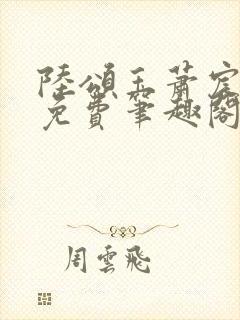 陸頌玉蕭宸
免費筆趣閣
周雲飛